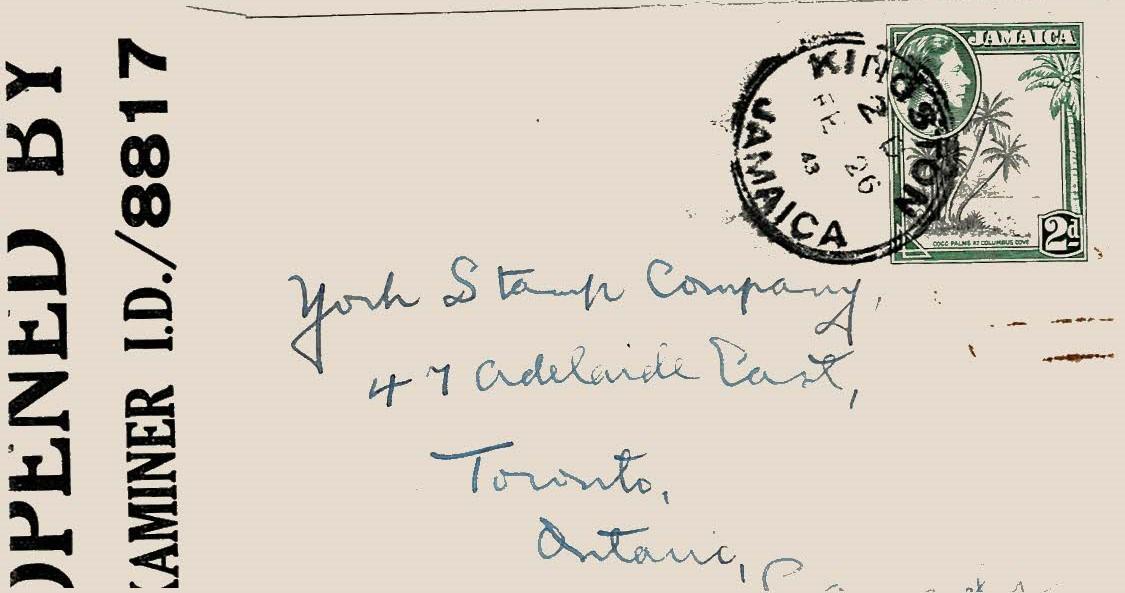 OPENED BY
EXAMINER I.D./8817
JAMAICA
KINGSTON
2
FE 26
43
JAMAICA
COCO PALMS AT COLUMBUS COVE
2d
York Stamp Company,
47 Adelaide East,
Toronto,
Ontario,
Canada